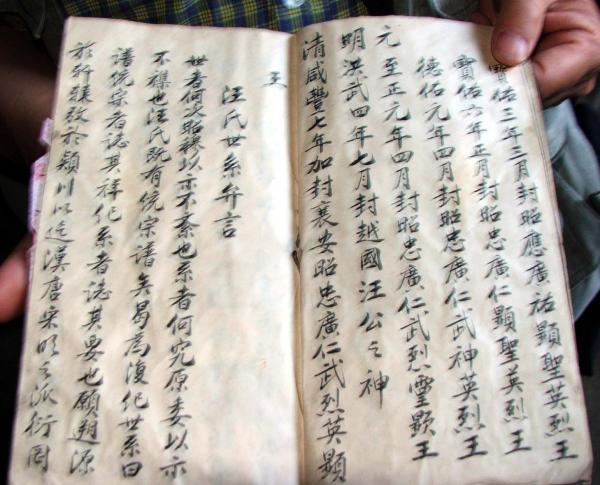 寳佑三年三月封昭應廣祐顯聖英烈王
寳佑六年正月封昭忠廣仁顯聖英烈王
德佑元年四月封昭忠廣仁武神英烈王
元至正元年四月封昭忠廣仁武烈靈顯王
明洪武四年七月封越國汪公之神
清咸豐七年加封襄安昭忠廣仁武烈英顯
王
汪氏世系弁言
世者何次昭穆以亦不紊也系者何究原委以亦
不襍也汪氏既有統宗譜矣曷為復作世系曰
譜統宗者誌其祥作系者誌其要也願朔源
於軒轅放於潁川以迄漢唐宋明之派衍罔